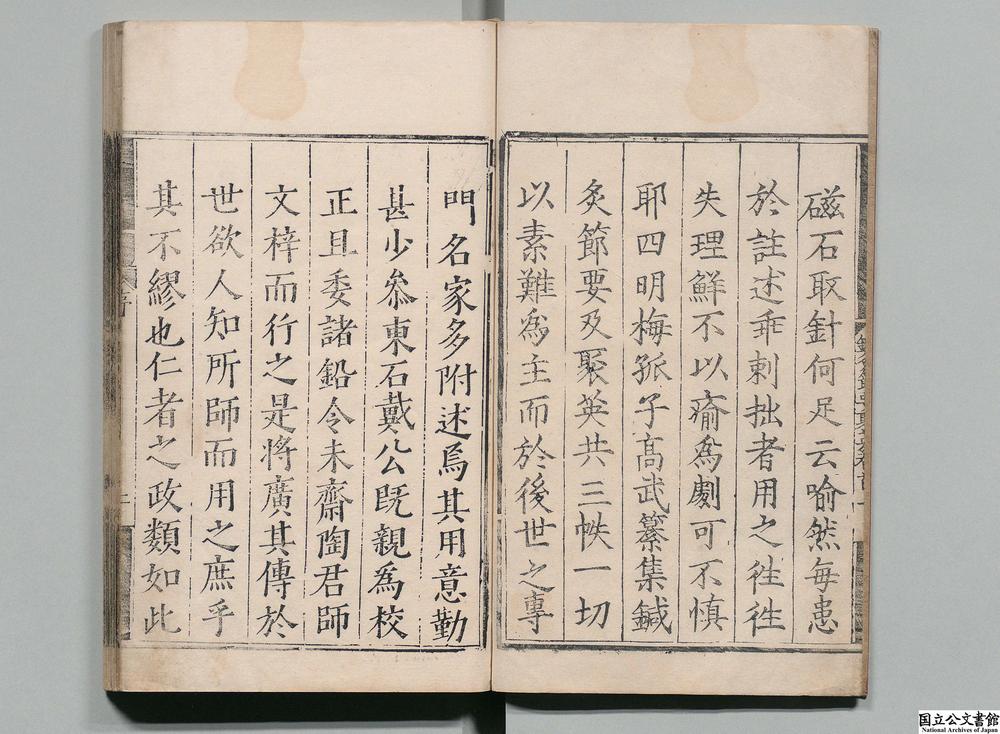 磁石取針何足云喻然每患
於註述乖剌拙者用之徃徃
失理鮮不以瘉為劇可不慎
耶四明梅孤子高武纂集鍼
灸節要及聚英共三帙一切
以素難為主而於後世之專
門名家多附述焉其用意勤
甚少叅東石戴公既親為校
正且委諸鉛令未齋陶君師
文梓而行之是將廣其傳於
世欲人知所師而用之庶乎
其不繆也仁者之政類如此
国立公文書館
National Archives of Japan